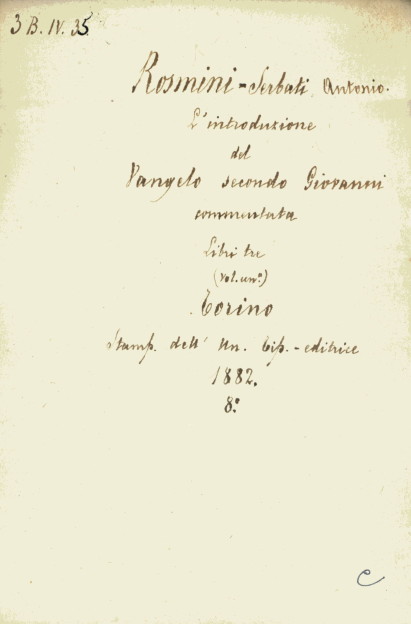 3 B. IV. 35
Rosmini-Serbati Antonio.
L'introduzione
del
Vangelo secondo Giovanni
commentata
Libri tre
(vol. unº.)
Torino
Stamp. dell' Un. Tip.-editrice
1882.
8º
C